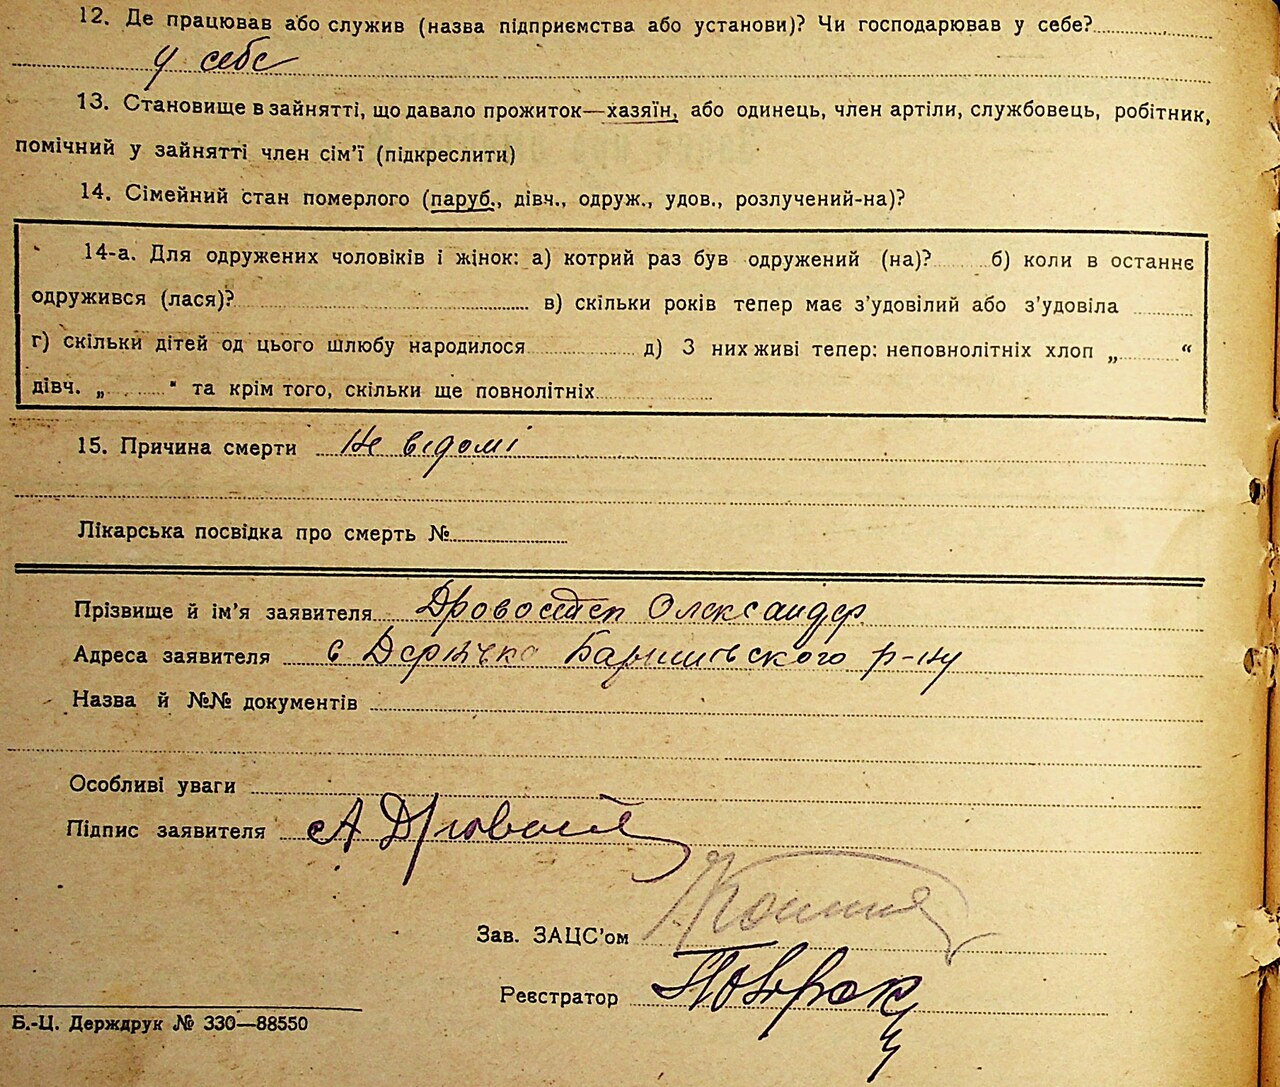 12. Де працював або служив (назва підприємства або установи)? Чи господарював у себе?
у себе
13. Становище в зайнятті, що давало прожиток—хазяїн, або одинець, член артіли, службовець, робітник,
помічний у зайнятті член сім'ї (підкреслити)
14. Сімейний стан померлого (паруб., дівч., одруж., удов., розлучений-на)?
14-а. Для одружених чоловіків і жінок: а) котрий раз був одружений (на)? б) коли в останнє
одружився (лася)? в) скільки років тепер має з'удовілий або з'удовіла
г) скільки дітей од цього шлюбу народилося д) З них живі тепер: неповнолітніх хлоп „ “
дівч. „ “ та крім того, скільки ще повнолітніх
15. Причина смерти Не відомі
Лікарська посвідка про смерть №
Прізвище й ім'я заявителя Дровосєп Олександр
Адреса заявителя с Баришівського р-ну
Назва й №№ документів
Особливі уваги
Підпис заявителя
Зав. ЗАЦС'ом
Реєстратор
Б.-Ц. Держдрук № 330—88550